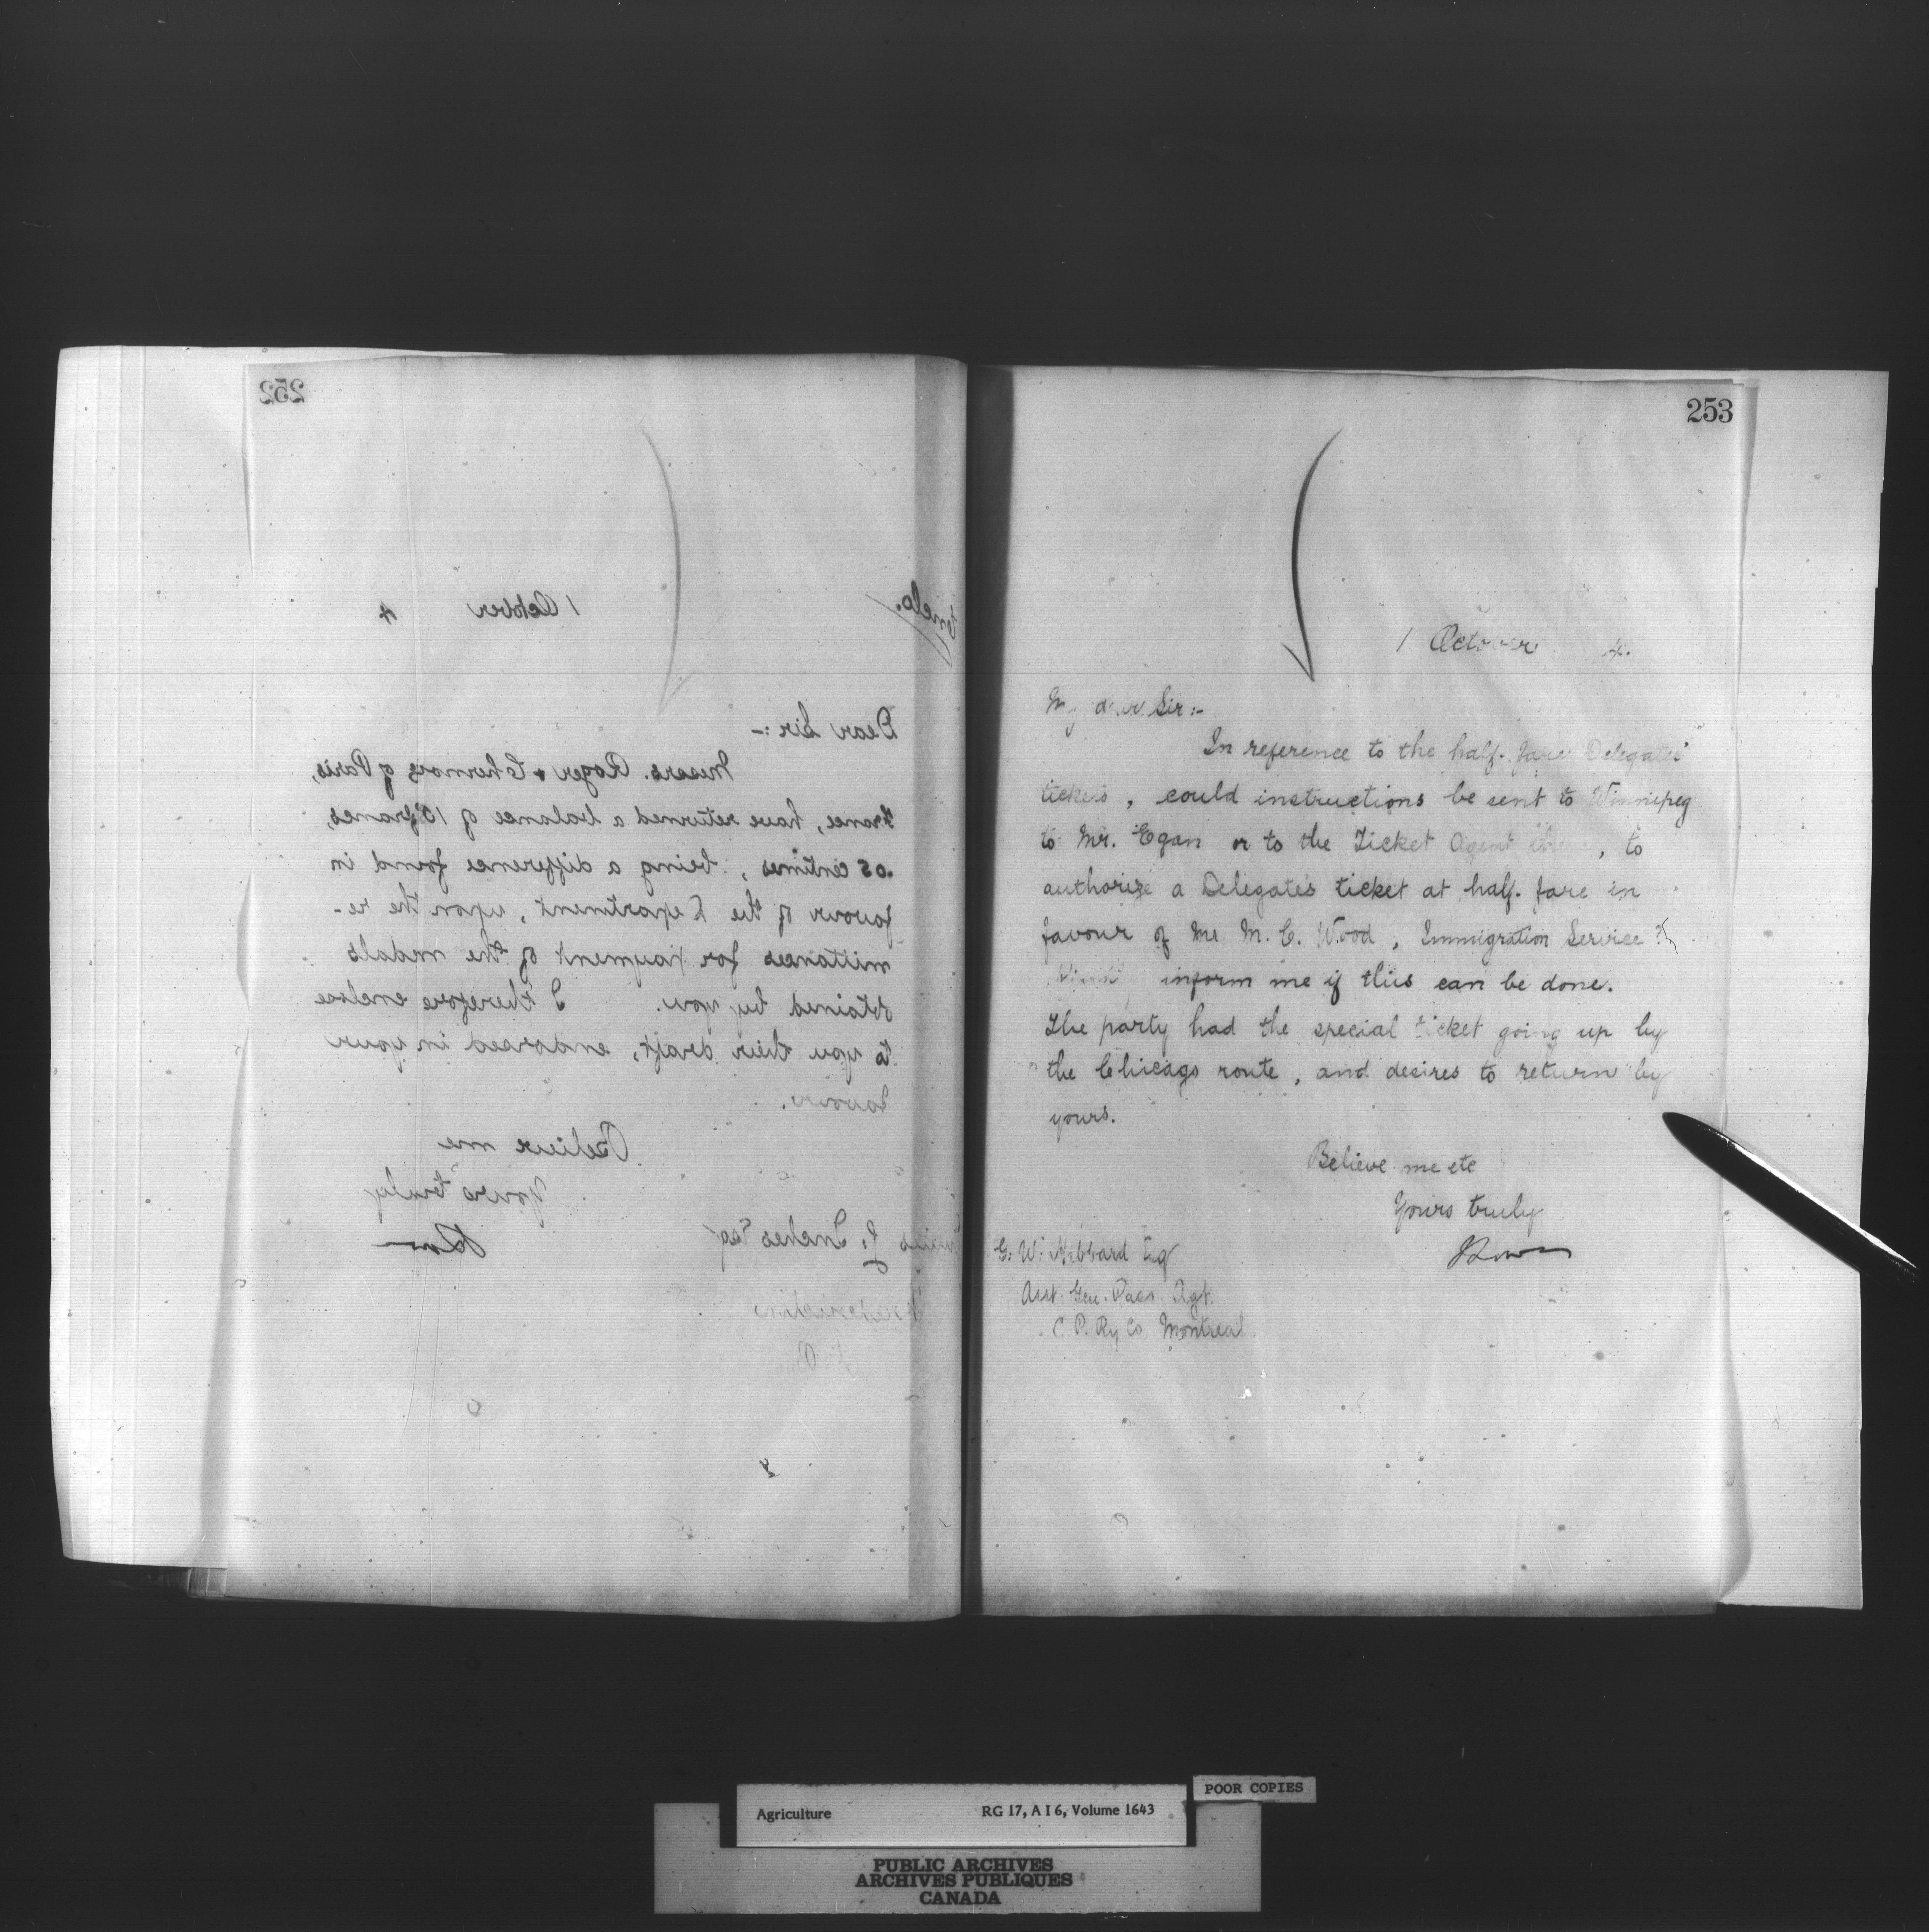 252
Enclo.
1 October 4
Dear Sir:-
Messrs. Roger & Chernoviz of Paris,
France, have returned a balance of francs,
.05 centimes, being a difference found in
favour of the Department, upon the re-
mittances for payment of the medals
obtained by you. I therefore enclose
to you their draft, endorsed in your
favour.
Believe me
Yours truly
J. Inches Esq
Fredericton
253
1 October 4.
My dear Sir:-
In reference to the half-fare Delegates'
tickets, could instructions be sent to Winnipeg
to Mr. Egan or to the Ticket Agent there, to
authorize a Delegate's ticket at half-fare in
favour of Mr M. C. Wood, Immigration Service?
Kindly inform me if this can be done.
The party had the special ticket going up by
the Chicago route, and desires to return by
yours.
Believe me etc
Yours truly
JLowe
G. W. Hibbard Esq
Asst. Gen. Pass. Agt.
C. P. Ry Co Montreal
POOR COPIES
Agriculture RG 17, A I 6, Volume 1643
PUBLIC ARCHIVES
ARCHIVES PUBLIQUES
CANADA